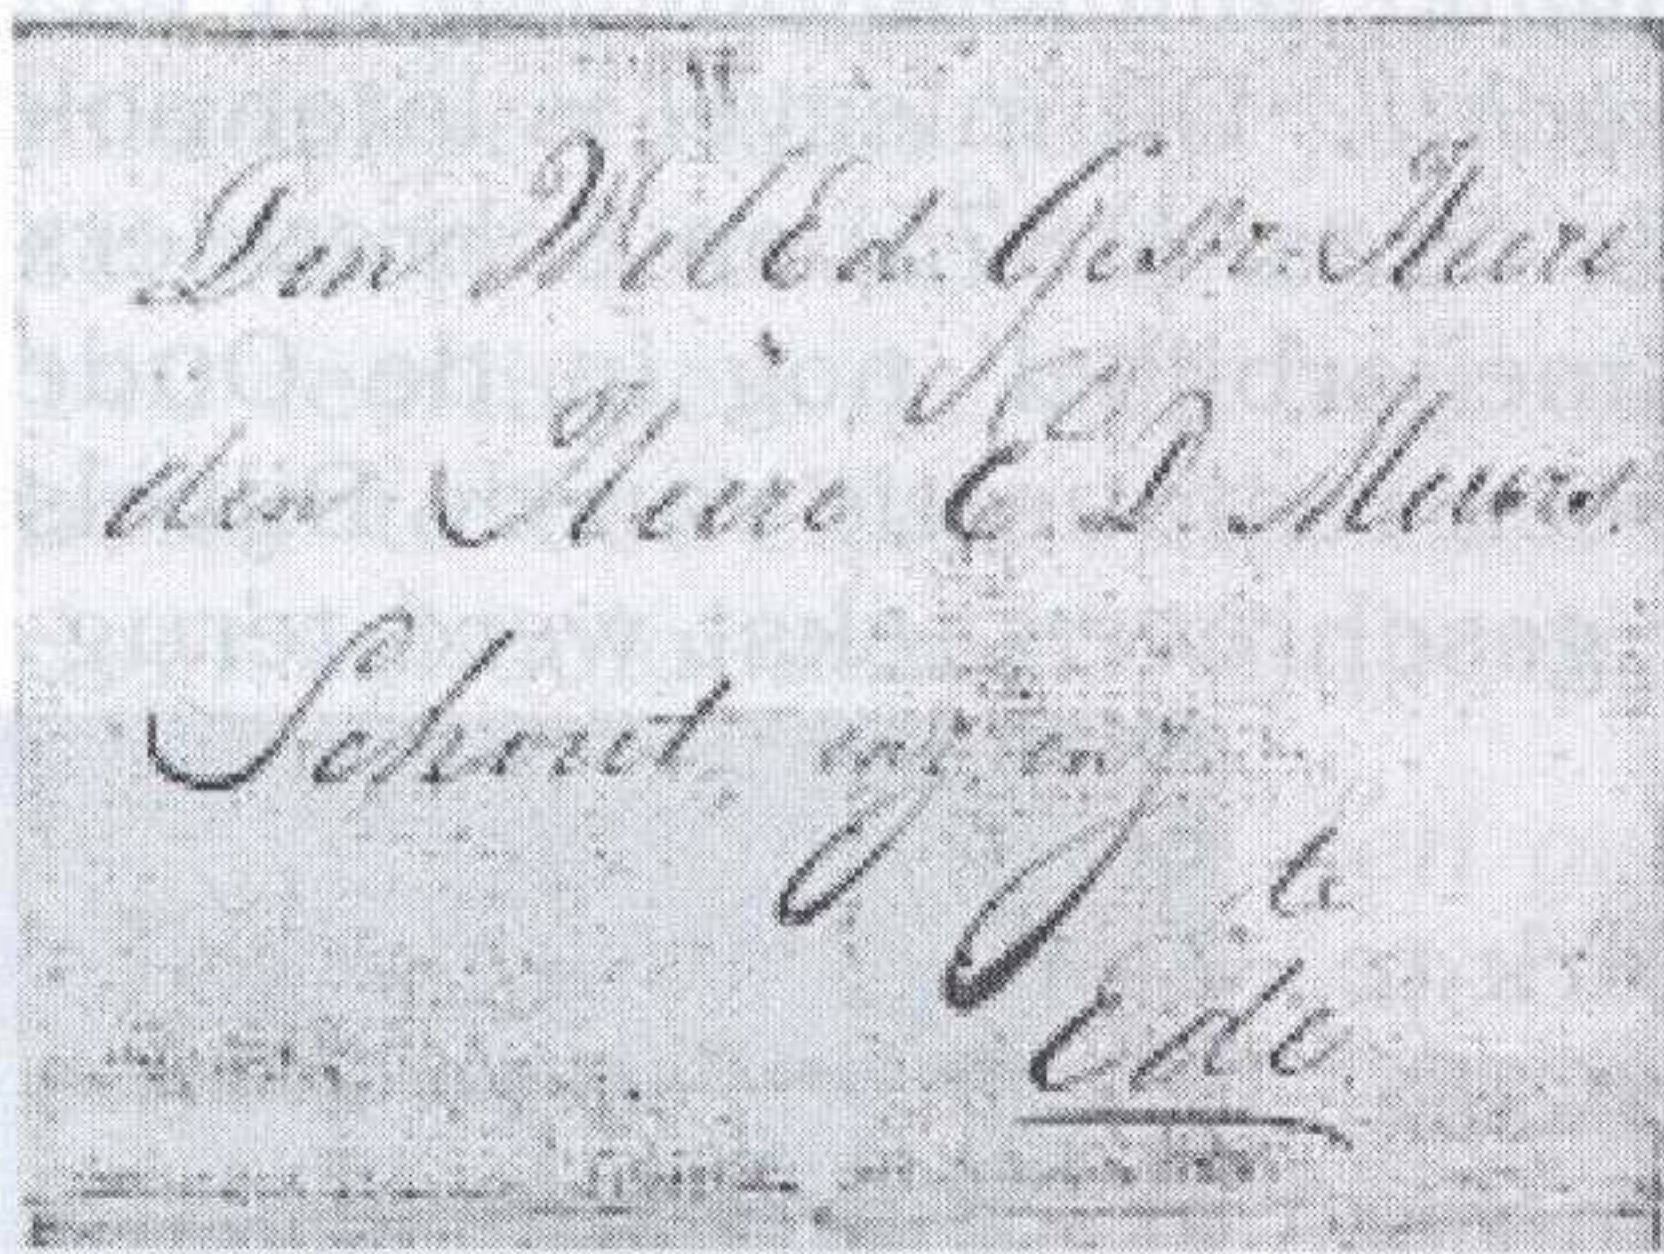 Den WelEd. Gestr. Heere
den Heere C. D. Meurs.
Schout, enz. enz.
te
Ede.